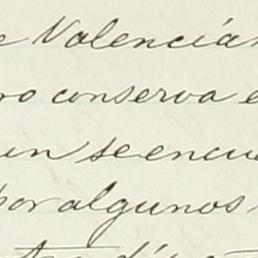 e Valencia
ro conserva e
un se encue
por algunos